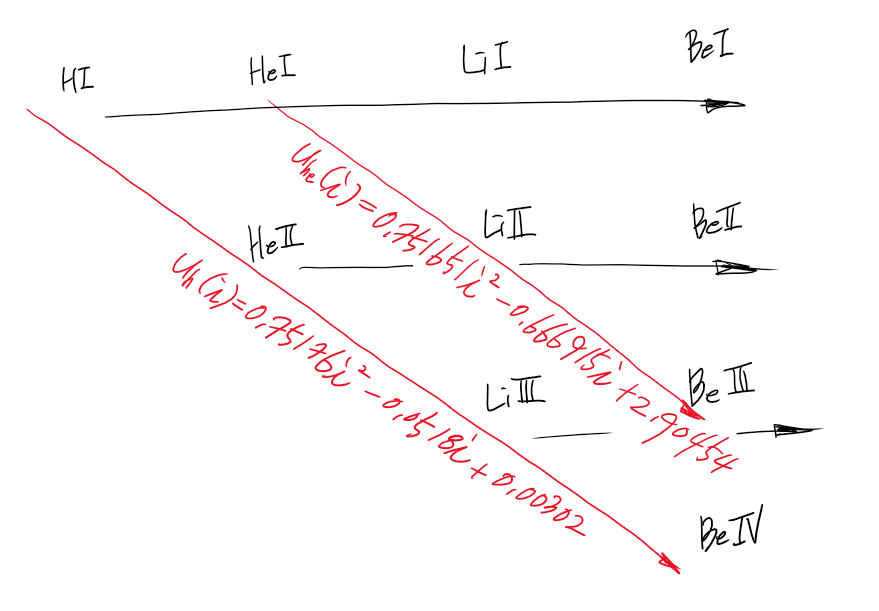 HI HeI LiI BeI
u_he(i)=0.751651i²-0.666915i+2.90454
HeII LiII BeII
u_h(i)=0.75176i²-0.0518i+0.00302
LiIII BeIII
BeIV